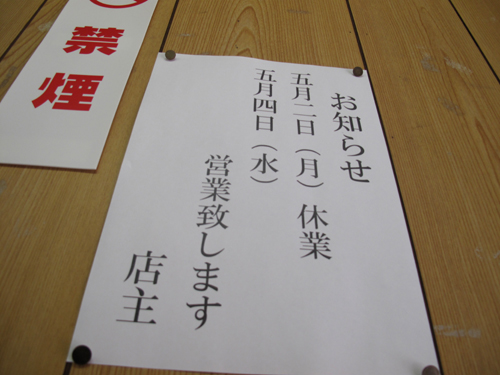 お知らせ
五月二日（月）休業
五月四日（水）
営業致します
店主
禁煙